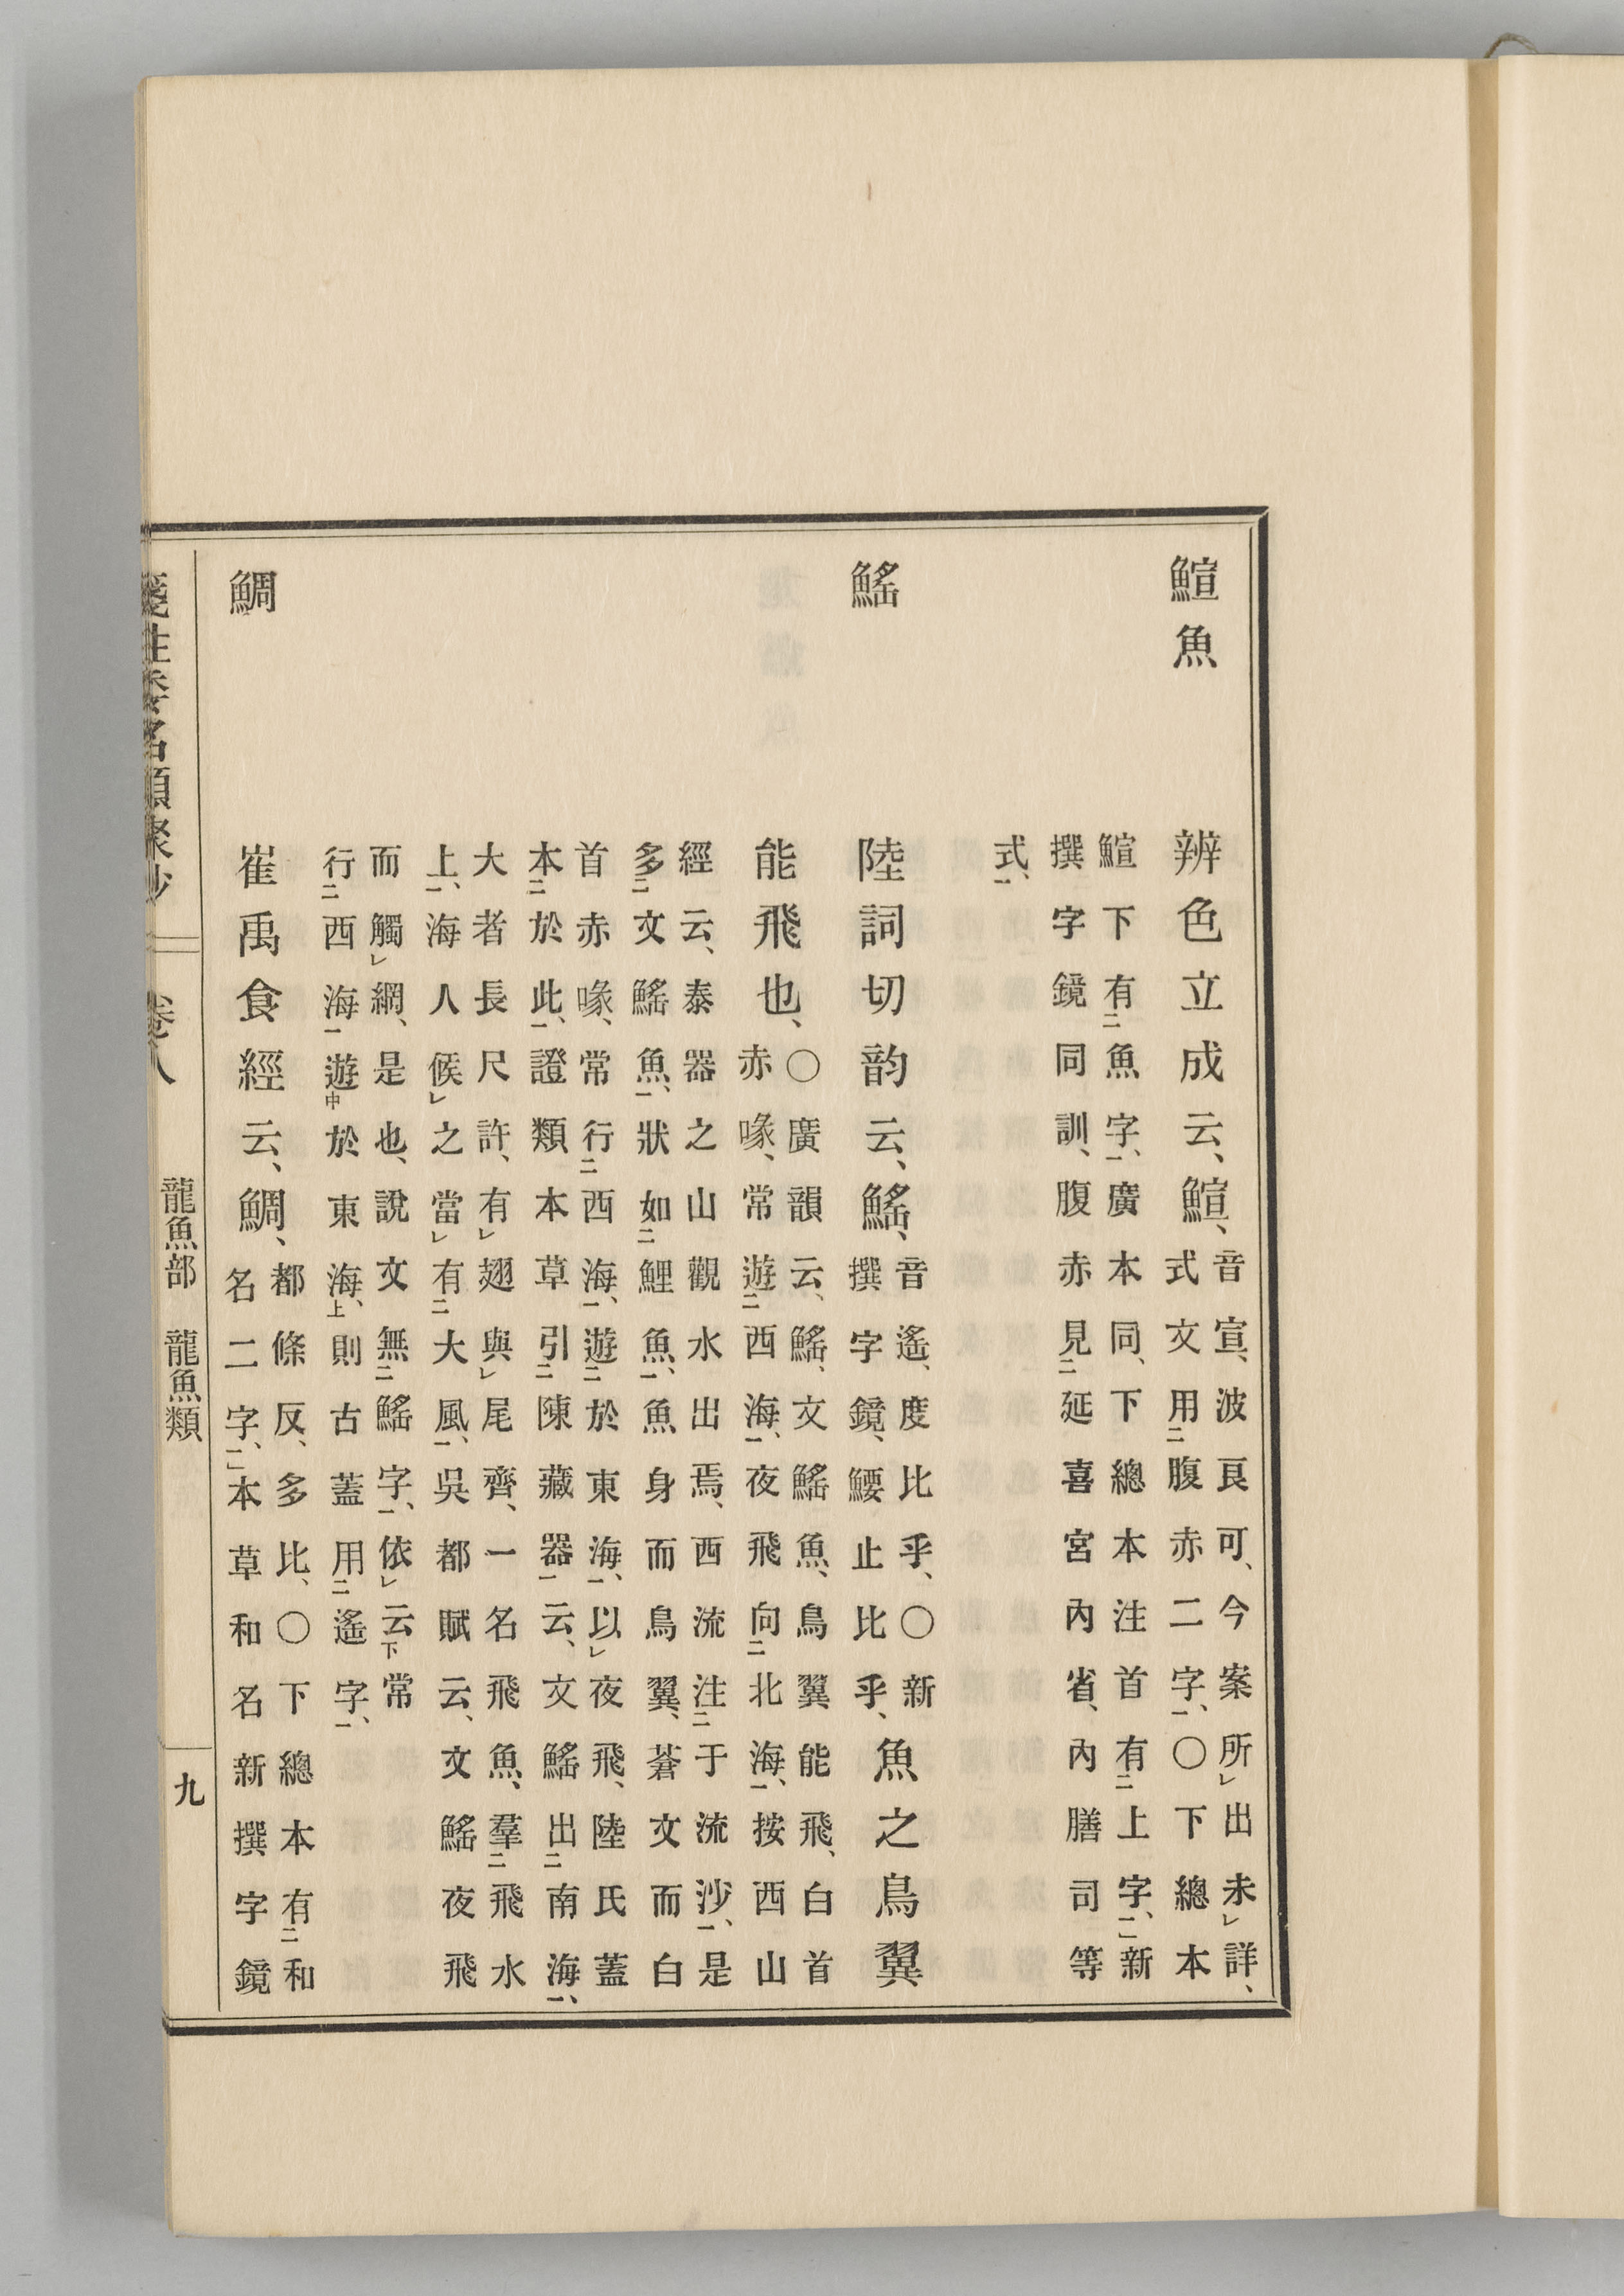 鰚魚
辨色立成云、鰚、
音宣、波良可、今案所出未詳、
式文用腹赤二字、〇下總本
鰚下有魚字、廣本同、下總本注首有上字、新
撰字鏡同訓、腹赤見延喜宮內省、內膳司等
式、
鰩
陸詞切韵云、鰩、
音遙、度比乎、〇新
撰字鏡、止比乎、
魚之鳥翼
能飛也、
〇廣韻云、鰩、文鰩魚、鳥翼能飛、白首
赤喙、常遊西海、夜飛向北海、按西山
經云、泰器之山觀水出焉、西流注于流沙、是
多文鰩魚、狀如鯉魚、魚身而鳥翼、蒼文而白
首赤喙、常行西海、遊於東海、以夜飛、陸氏蓋
本於此、證類本草引陳藏器云、文鰩出南海、
大者長尺許、有翅與尾齊、一名飛魚、羣飛水
上、海人候之當有大風、吳都賦云、文鰩夜飛
而觸網、是也、說文無鰩字、依云常
行西海遊於東海、則古蓋用遙字、
鯛
崔禹食經云、鯛、
都條反、多比、〇下總本有和
名二字、本草和名新撰字鏡
箋注倭名類聚抄 卷八 龍魚部 龍魚類 九